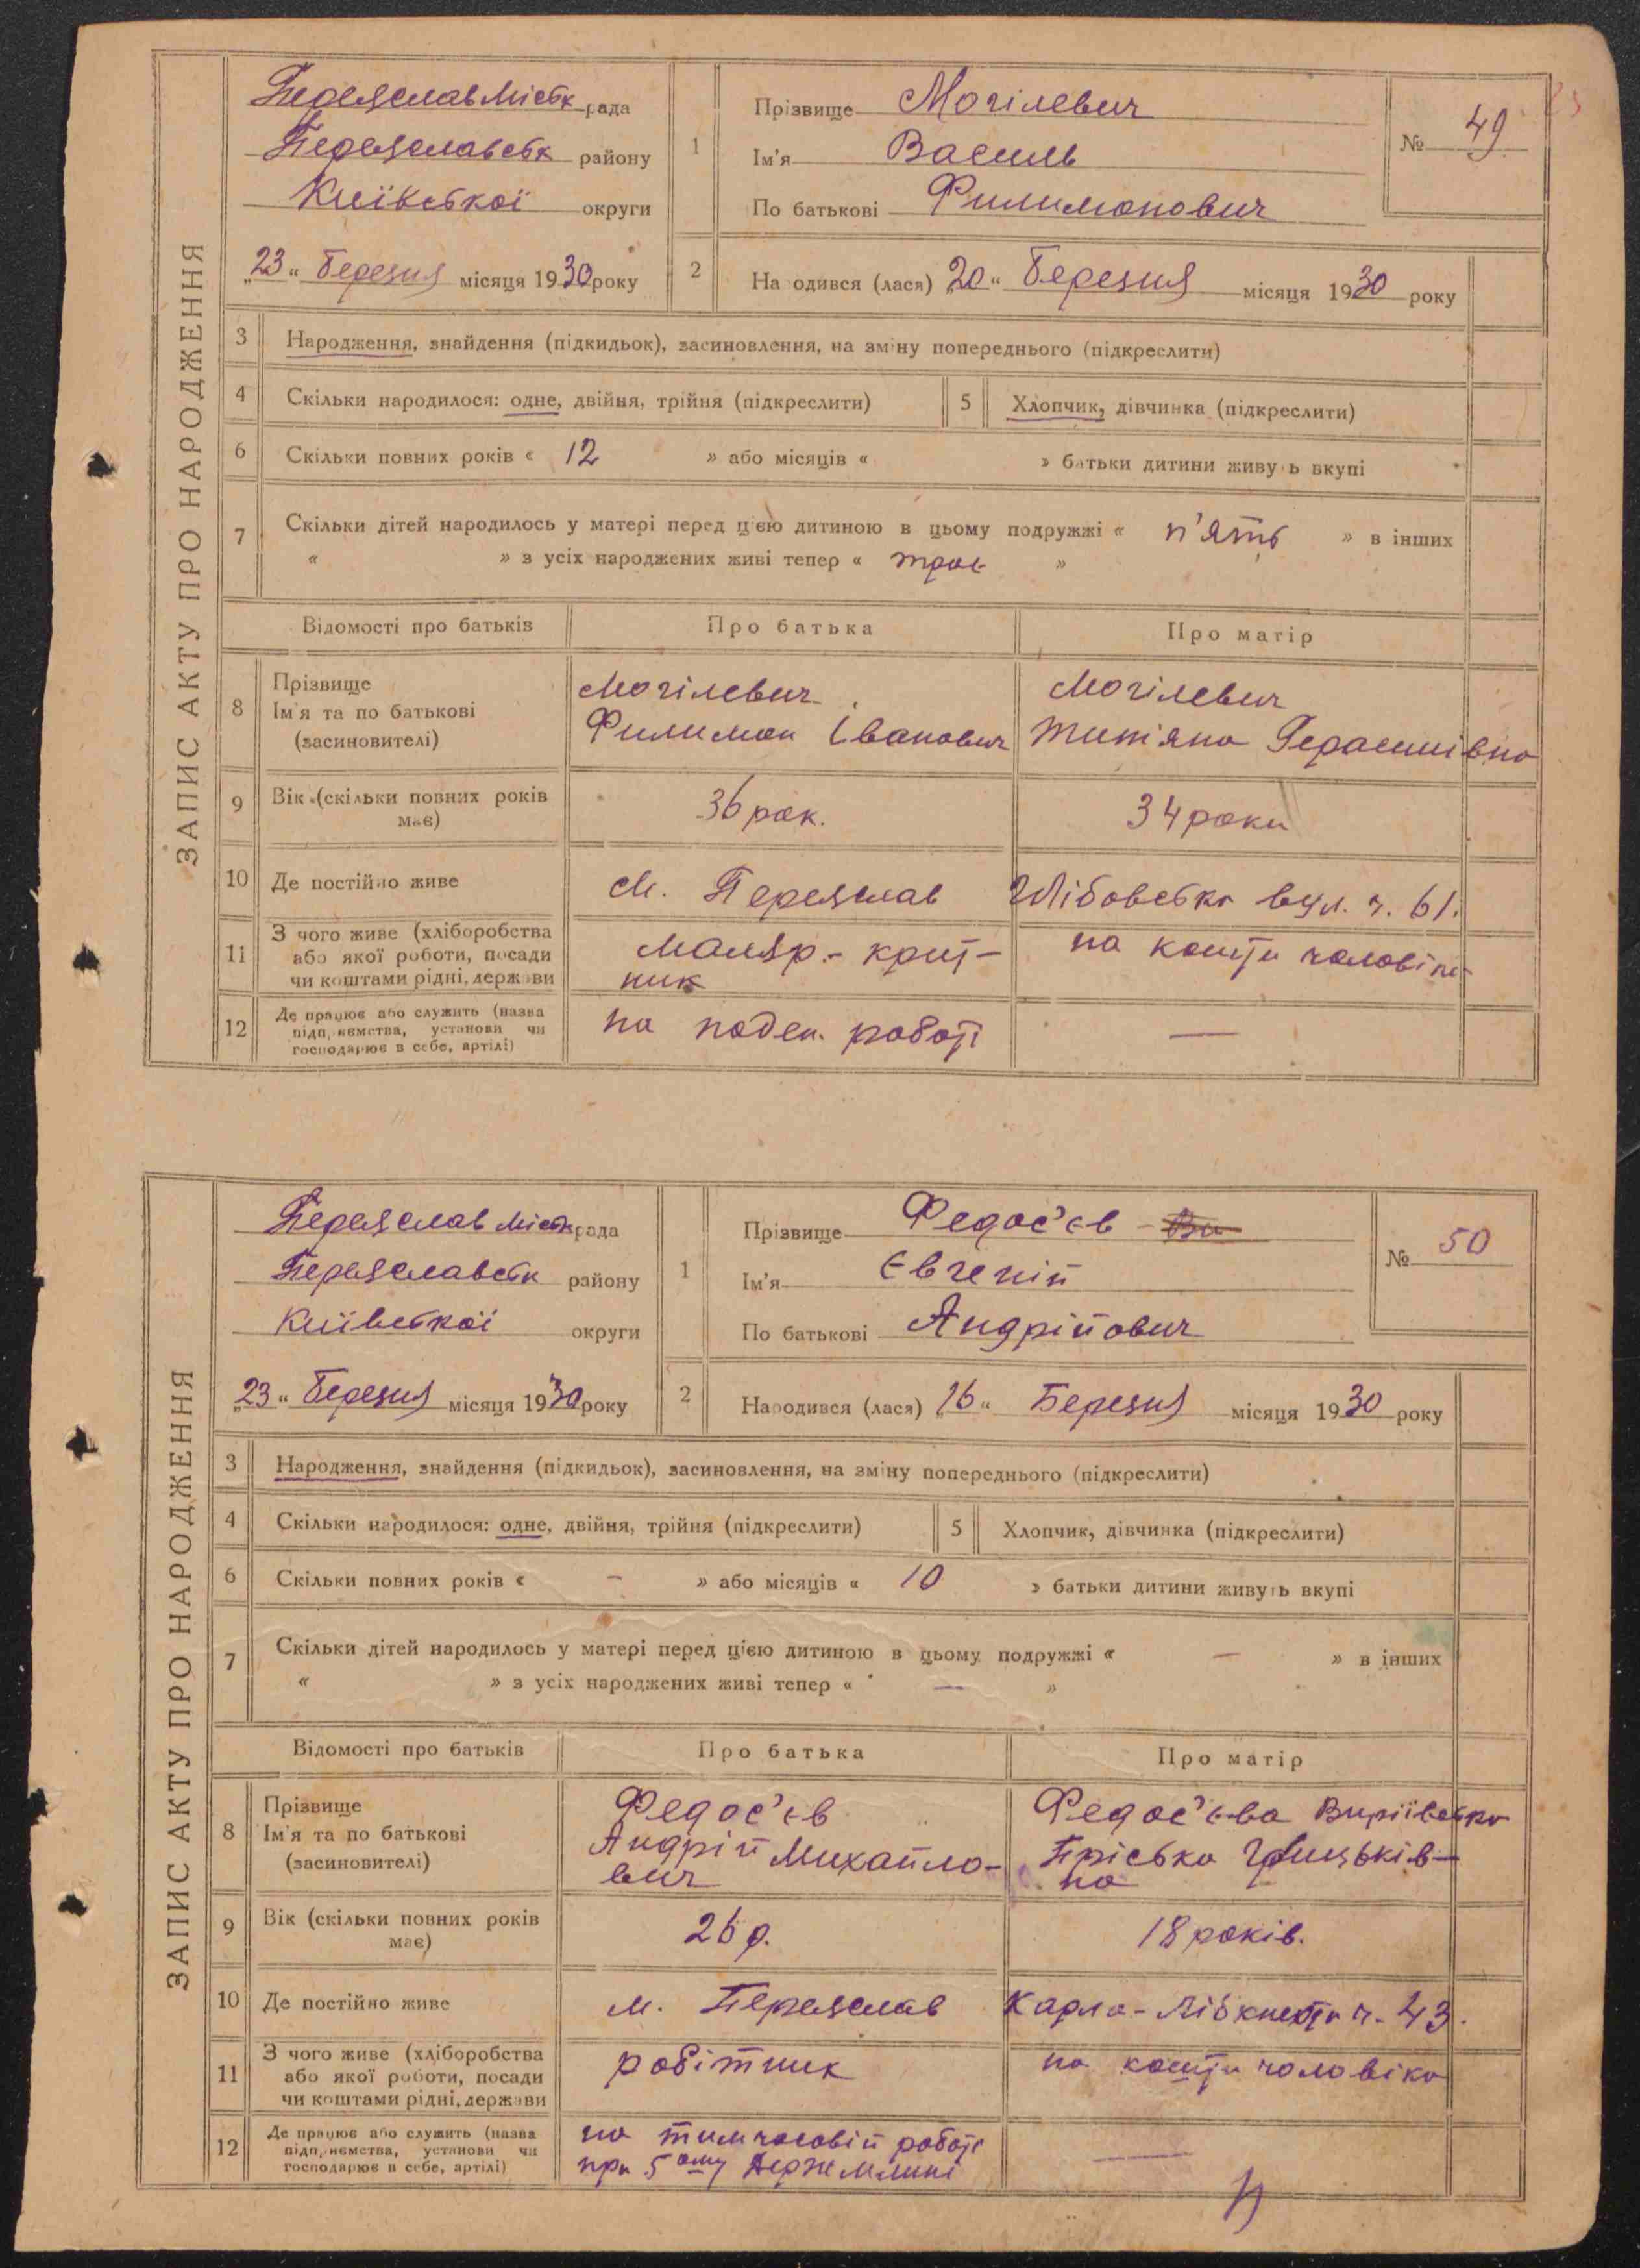 ЗАПИС АКТУ ПРО НАРОДЖЕННЯ
ПереяславМіськ рада
Переяславськ району
Київської округи
„23“ Березня місяця 1930 року
1
Прізвище Могілевич
Ім'я Василь
По батькові Филимонович
№ 49
2 На одився (лася) „20“ Березня місяця 1930 року
3 Народження, знайдення (підкидьок), засиновлення, на зміну попереднього (підкреслити)
4 Скільки народилося: одне, двійня, трійня (підкреслити) 5 Хлопчик, дівчинка (підкреслити)
6 Скільки повних років « 12 » або місяців « » батьки дитини живуть вкупі
7 Скільки дітей народилось у матері перед цією дитиною в цьому подружжі « п'ять » в інших
« » з усіх народжених живі тепер « троє »
Відомості про батьків Про батька Про матір
8 Прізвище
Ім'я та по батькові
(засиновителі)
Могілевич
Филимон Іванович
Могілевич
Тит'яна Герасимівна
9 Вік (скільки повних років має) 36 рок. 34 роки
10 Де постійно живе м. Переяслав вул. ч. 61.
11 З чого живе (хліборобства
або якої роботи, посади
чи коштами рідні, держави
маляр.-
ник
на кошти чоловіка
12 Де працює або служить (назва
підприємства, установи чи
господарює в себе, артілі)
на поден. роботі
—
ЗАПИС АКТУ ПРО НАРОДЖЕННЯ
Переяслав Міськ рада
Переяславськ району
Київської округи
„23“ Березня місяця 1930 року
1
Прізвище Федос'єв
Ім'я Євгеній
По батькові Андрійович
№ 50
2 Народився (лася) „16“ Березня місяця 1930 року
3 Народження, знайдення (підкидьок), засиновлення, на зміну попереднього (підкреслити)
4 Скільки народилося: одне, двійня, трійня (підкреслити) 5 Хлопчик, дівчинка (підкреслити)
6 Скільки повних років « – » або місяців « 10 » батьки дитини живуть вкупі
7 Скільки дітей народилось у матері перед цією дитиною в цьому подружжі « — » в інших
« » з усіх народжених живі тепер « — »
Відомості про батьків Про батька Про матір
8 Прізвище
Ім'я та по батькові
(засиновителі)
Федос'єв
Андрій Михайло-
вич
Федос'єва
Пріська Грицьків-
на
9 Вік (скільки повних років має) 26 р. 18 років.
10 Де постійно живе м. Переяслав Карла-Лібкнехта ч. 43.
11 З чого живе (хліборобства
або якої роботи, посади
чи коштами рідні, держави
робітник
на кошти чоловіка
12 Де працює або служить (назва
підприємства, установи чи
господарює в себе, артілі)
на тимчасовій роботі
при 5ому Держмлині
—